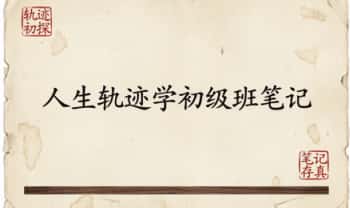 轨迹
初探
人生轨迹学初级班笔记
笔记
存真